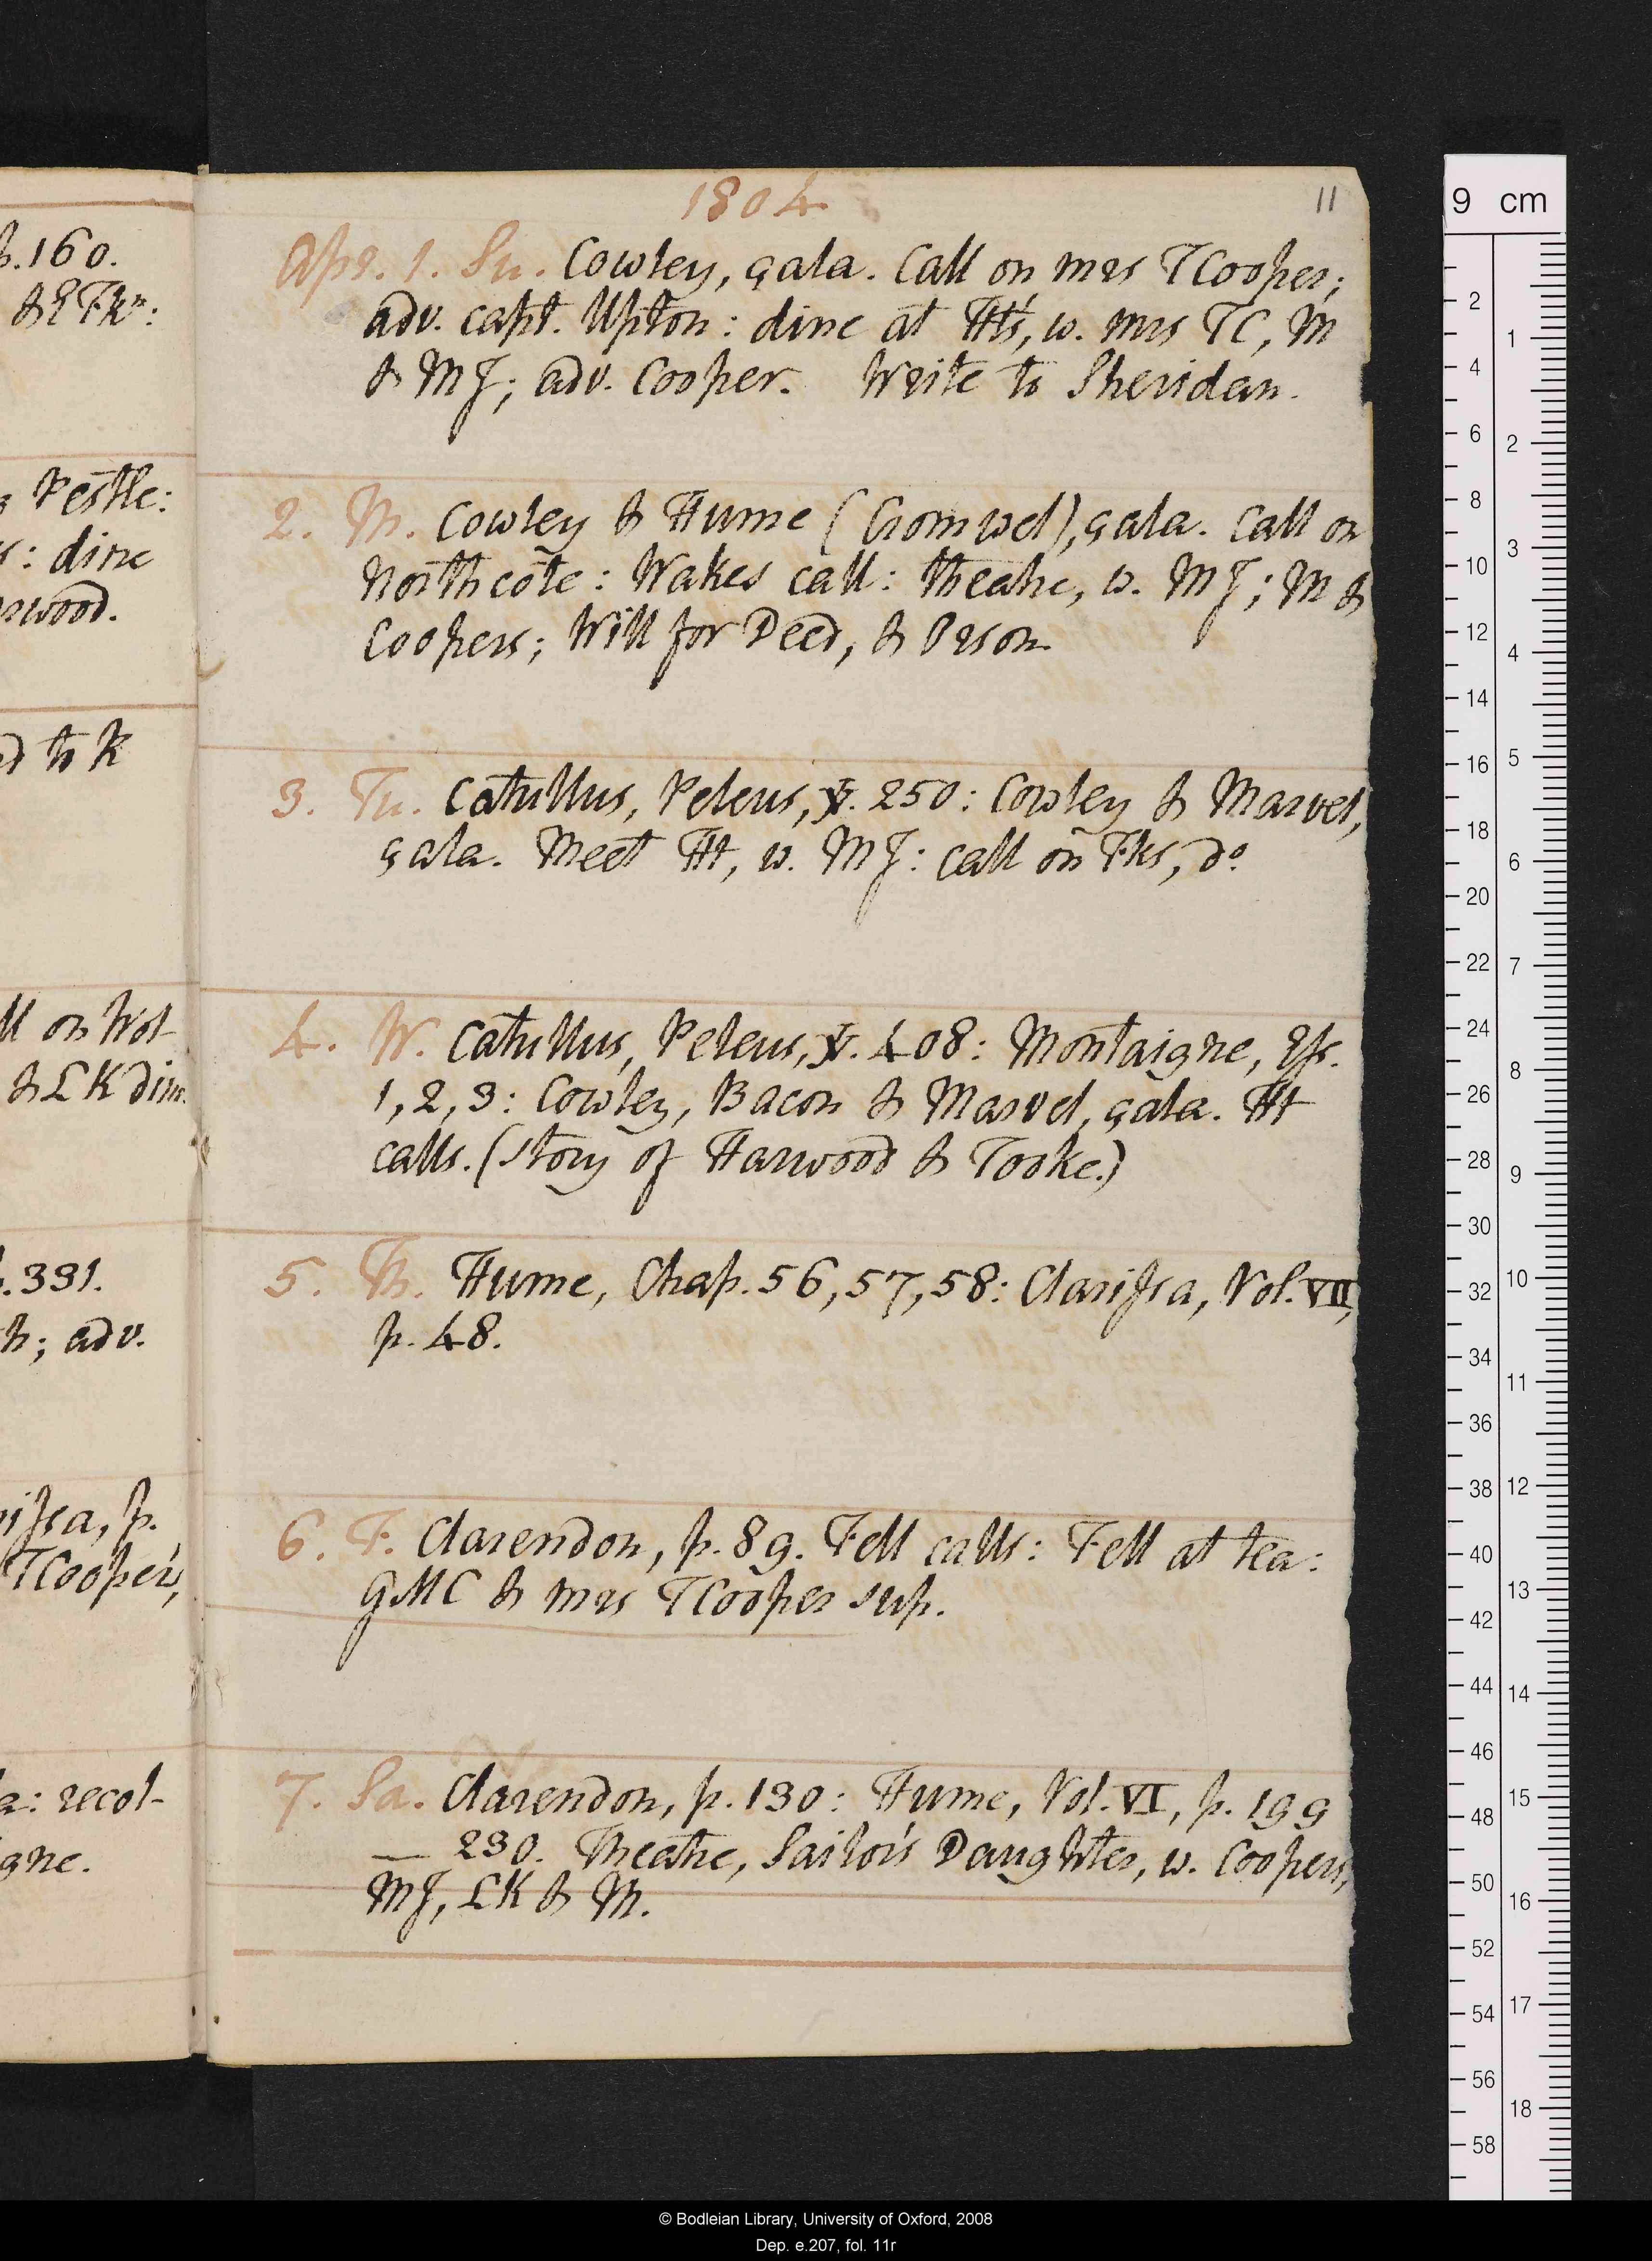 1804
11
Apr. 1. Su. Cowley, çala. Call on mrs TCooper;
adv. capt. Upton: dine at Ht's, w. mrs TC, M
& MJ; adv. Cooper. Write to Sheridan.
2. M. Cowley & Hume (Cromwel), çala. Call on
Northcote: Wakes call: theatre, w. MJ; M &
Coopers; Will for Deed, & Orson.
3. Tu. Catullus, Peleus, v. 250: Cowley & Marvel,
çala. Meet Ht, w. MJ: call on Fks, do.
4. W. Catullus, Peleus, v. 408: Montaigne, Ess.
1, 2, 3: Cowley, Bacon & Marvel, çala. Ht
calls. (Story of Harwood & Tooke.)
5. Th. Hume, Chap. 56, 57, 58: Clarissa, Vol. VII,
p. 48.
6. F. Clarendon, p. 89. Fell calls: Fell at tea:
GMC & mrs TCooper sup.
7. Sa. Clarendon, p. 130: Hume, Vol. VI, p. 199
— 230. Theatre, Sailor's Daughter, w. Coopers,
MJ, LK & M.
p. 160.
Pestle:
: dine
to K
ll on Wol-
& LK dine.
. 331.
; adv.
TCooper's,
: recol-
9 cm
2
4
6
8
10
12
14
16
18
20
22
24
26
28
30
32
34
36
38
40
42
44
46
48
50
52
54
56
58
1
2
3
4
5
6
7
8
9
10
11
12
13
14
15
16
17
18
© Bodleian Library, University of Oxford, 2008
Dep. e.207, fol. 11r